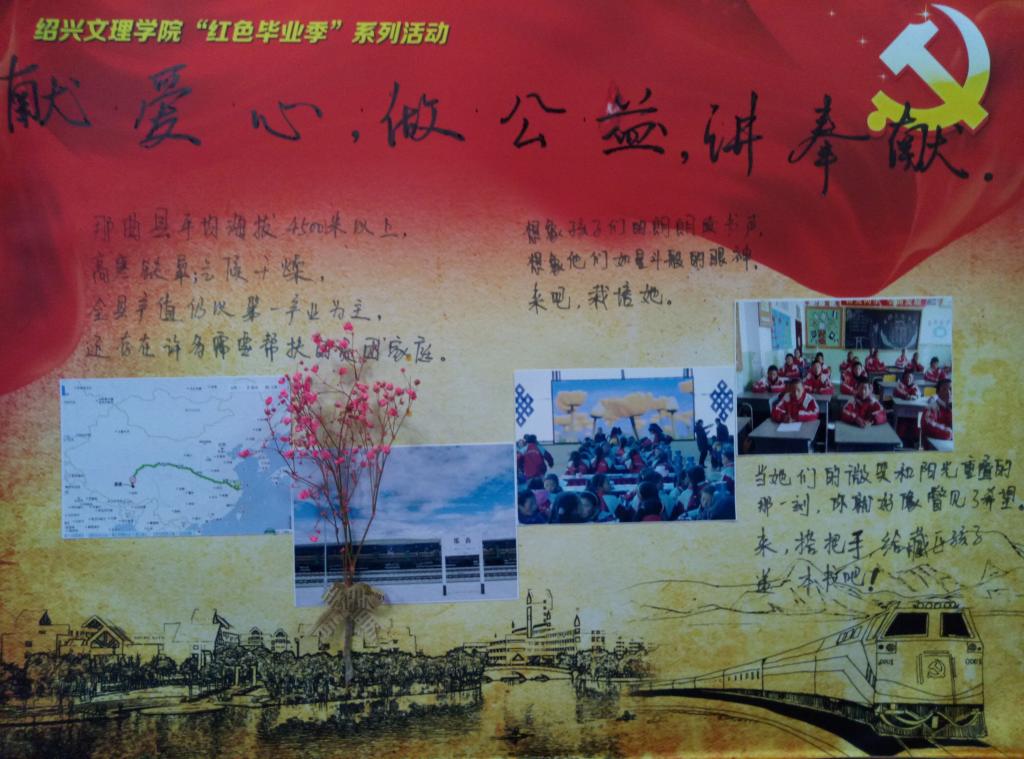 绍兴文理学院“红色毕业季”系列活动
献爱心,做公益,讲奉献.
那曲县平均海拔4500米以上,
高寒缺氧,气候干燥,
全县产值仍以第一产业为主,
还存在许多需要帮扶的贫困家庭。
想象孩子们的朗朗读书声,
想象他们如星斗般的眼神,
来吧,栽培她。
当她们的微笑和阳光重叠的
那一刻,你就好像瞥见了希望。
来,搭把手,给藏区孩子
送一本书吧!